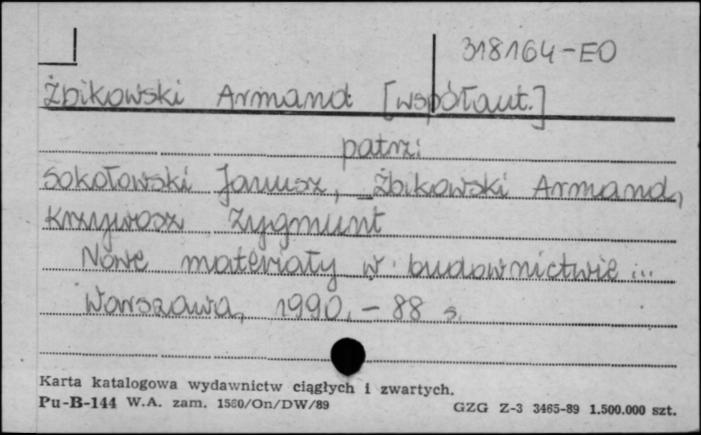 318164-EO
Żbikowski Armand [współaut.]
patrz:
Sokołowski Janusz, Żbikowski Armand,
Krzywosz Zygmunt
Nowe materiały w budownictwie...
Warszawa, 1990. - 88 s.
Karta katalogowa wydawnictw ciągłych i zwartych.
Pu-B-144 W.A. zam. 1580/On/DW/89 GZG Z-3 3465-89 1.500.000 szt.